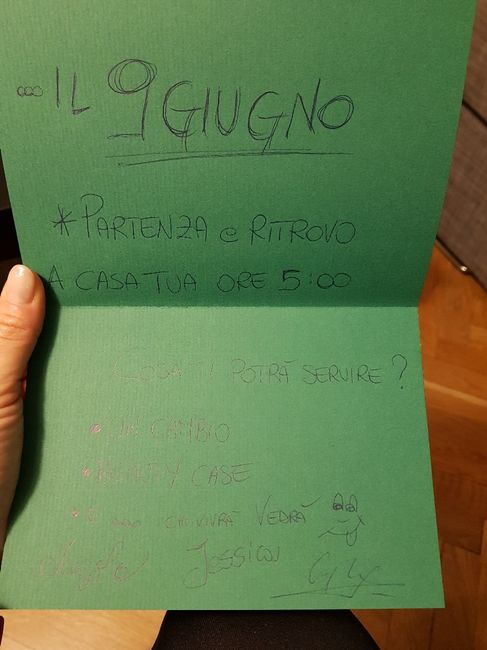 ...IL 9 GIUGNO
* PARTENZA e RITROVO
A CASA TUA ORE 5:00
COSA TI POTRÀ SERVIRE?
• UN CAMBIO
• BEAUTY CASE
• E ... CHI VIVRÀ VEDRÀ
Jessica